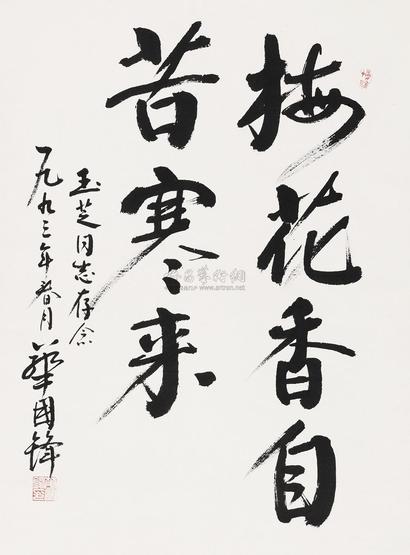 梅花香自
苦寒来
玉芝同志存念
一九九三年春月 华国锋
www.artron.net